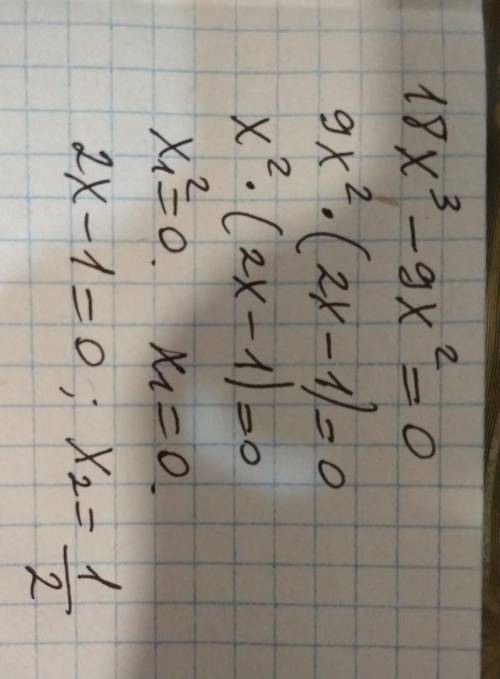 18x³ - 9x² = 0
9x² · (2x - 1) = 0
x² · (2x - 1) = 0
x₁² = 0. x₁ = 0.
2x - 1 = 0; x₂ = 1/2